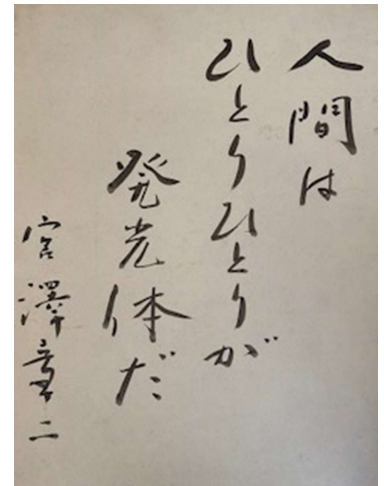 人間は
ひとりひとりが
発光体だ
宮澤章二